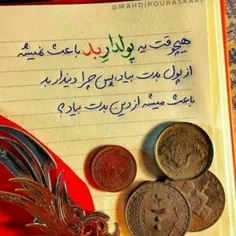 @MAHDIPOURASKARI
هیچوقت یه پولدار بد باعث نمیشه
از پول بدت بیاد، پس چرا دیندار بد
باعث میشه از دین بدت بیاد؟